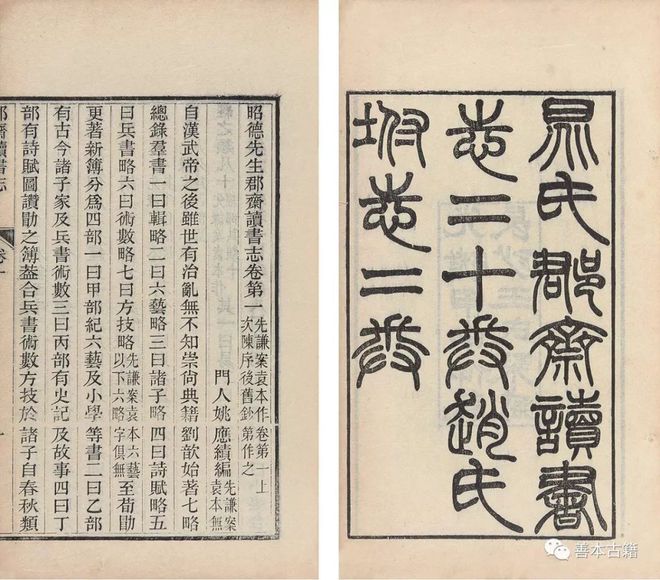 晁氏郡齋讀書
志二十卷趙氏
坿志二卷
昭德先生郡齋讀書志卷第一先謙案袁本作卷第一上次陳序後舊鈔第作之
門人姚應績編先謙案袁本無
自漢武帝之後雖世有治亂無不知崇尚典籍劉歆始著七略
總錄羣書一曰輯略二曰六藝略三曰諸子略四曰詩賦略五
曰兵書略六曰術數略七曰方技略先謙案袁本六藝以下六略字俱無至荀勖
更著新簿分爲四部一曰甲部紀六藝及小學等書二曰乙部
有古今諸子家及兵書術數三曰丙部有史記及故事四曰丁
部有詩賦圖讚勖之簿葢合兵書術數方技於諸子自春秋類
郡齋讀書志 卷一
善本古籍